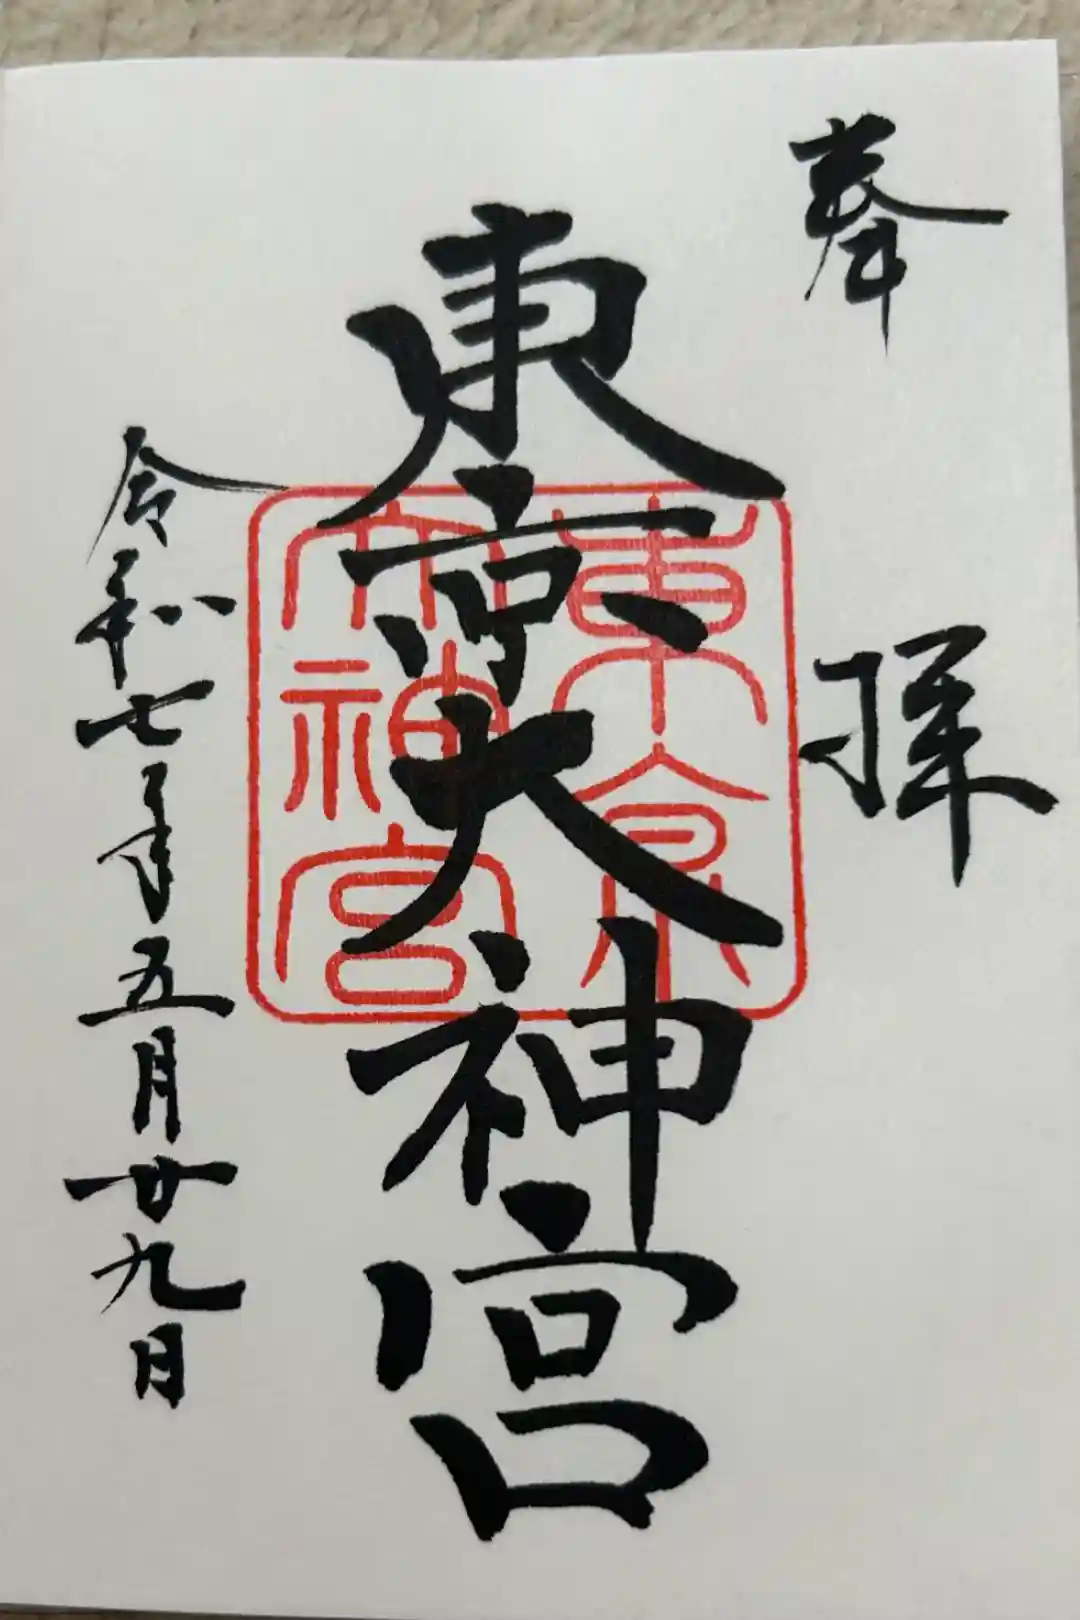 奉拝
東京大神宮
東京
大神宮
令和七年五月廿九日